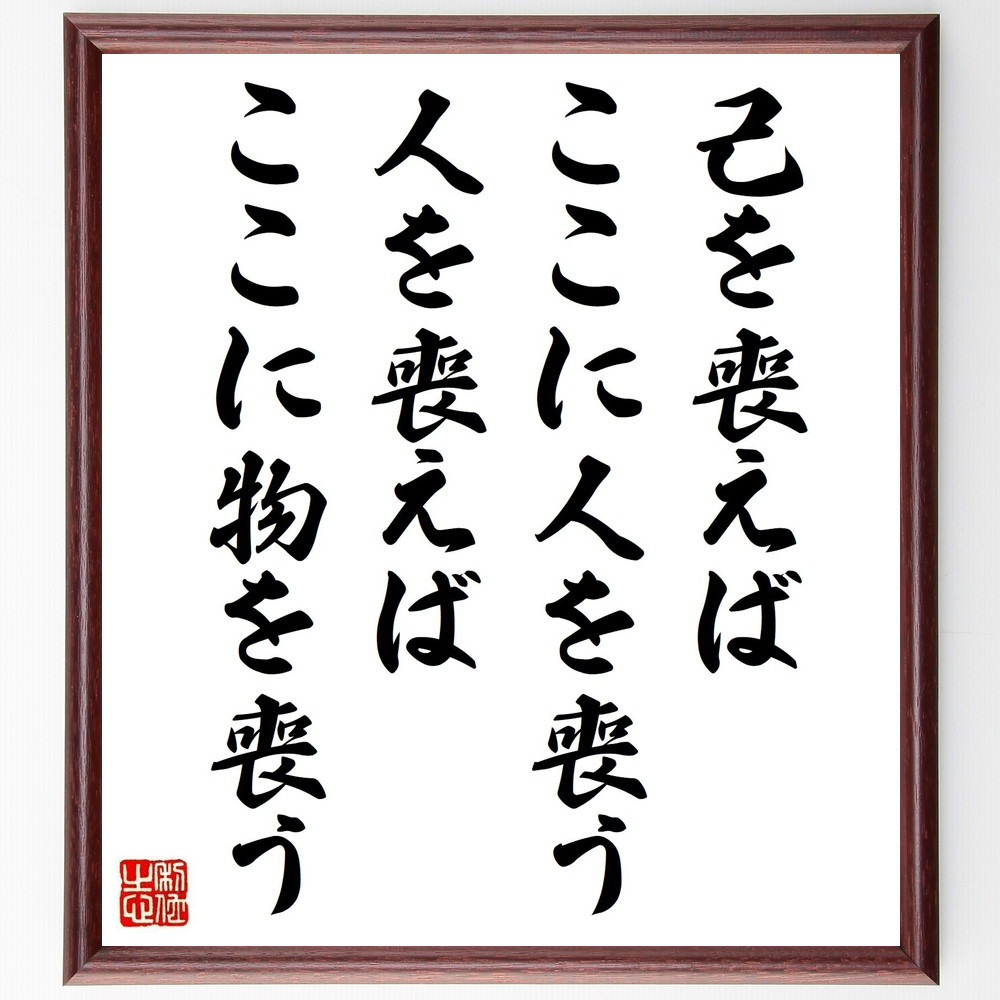 己を喪えば
ここに人を喪う
人を喪えば
ここに物を喪う